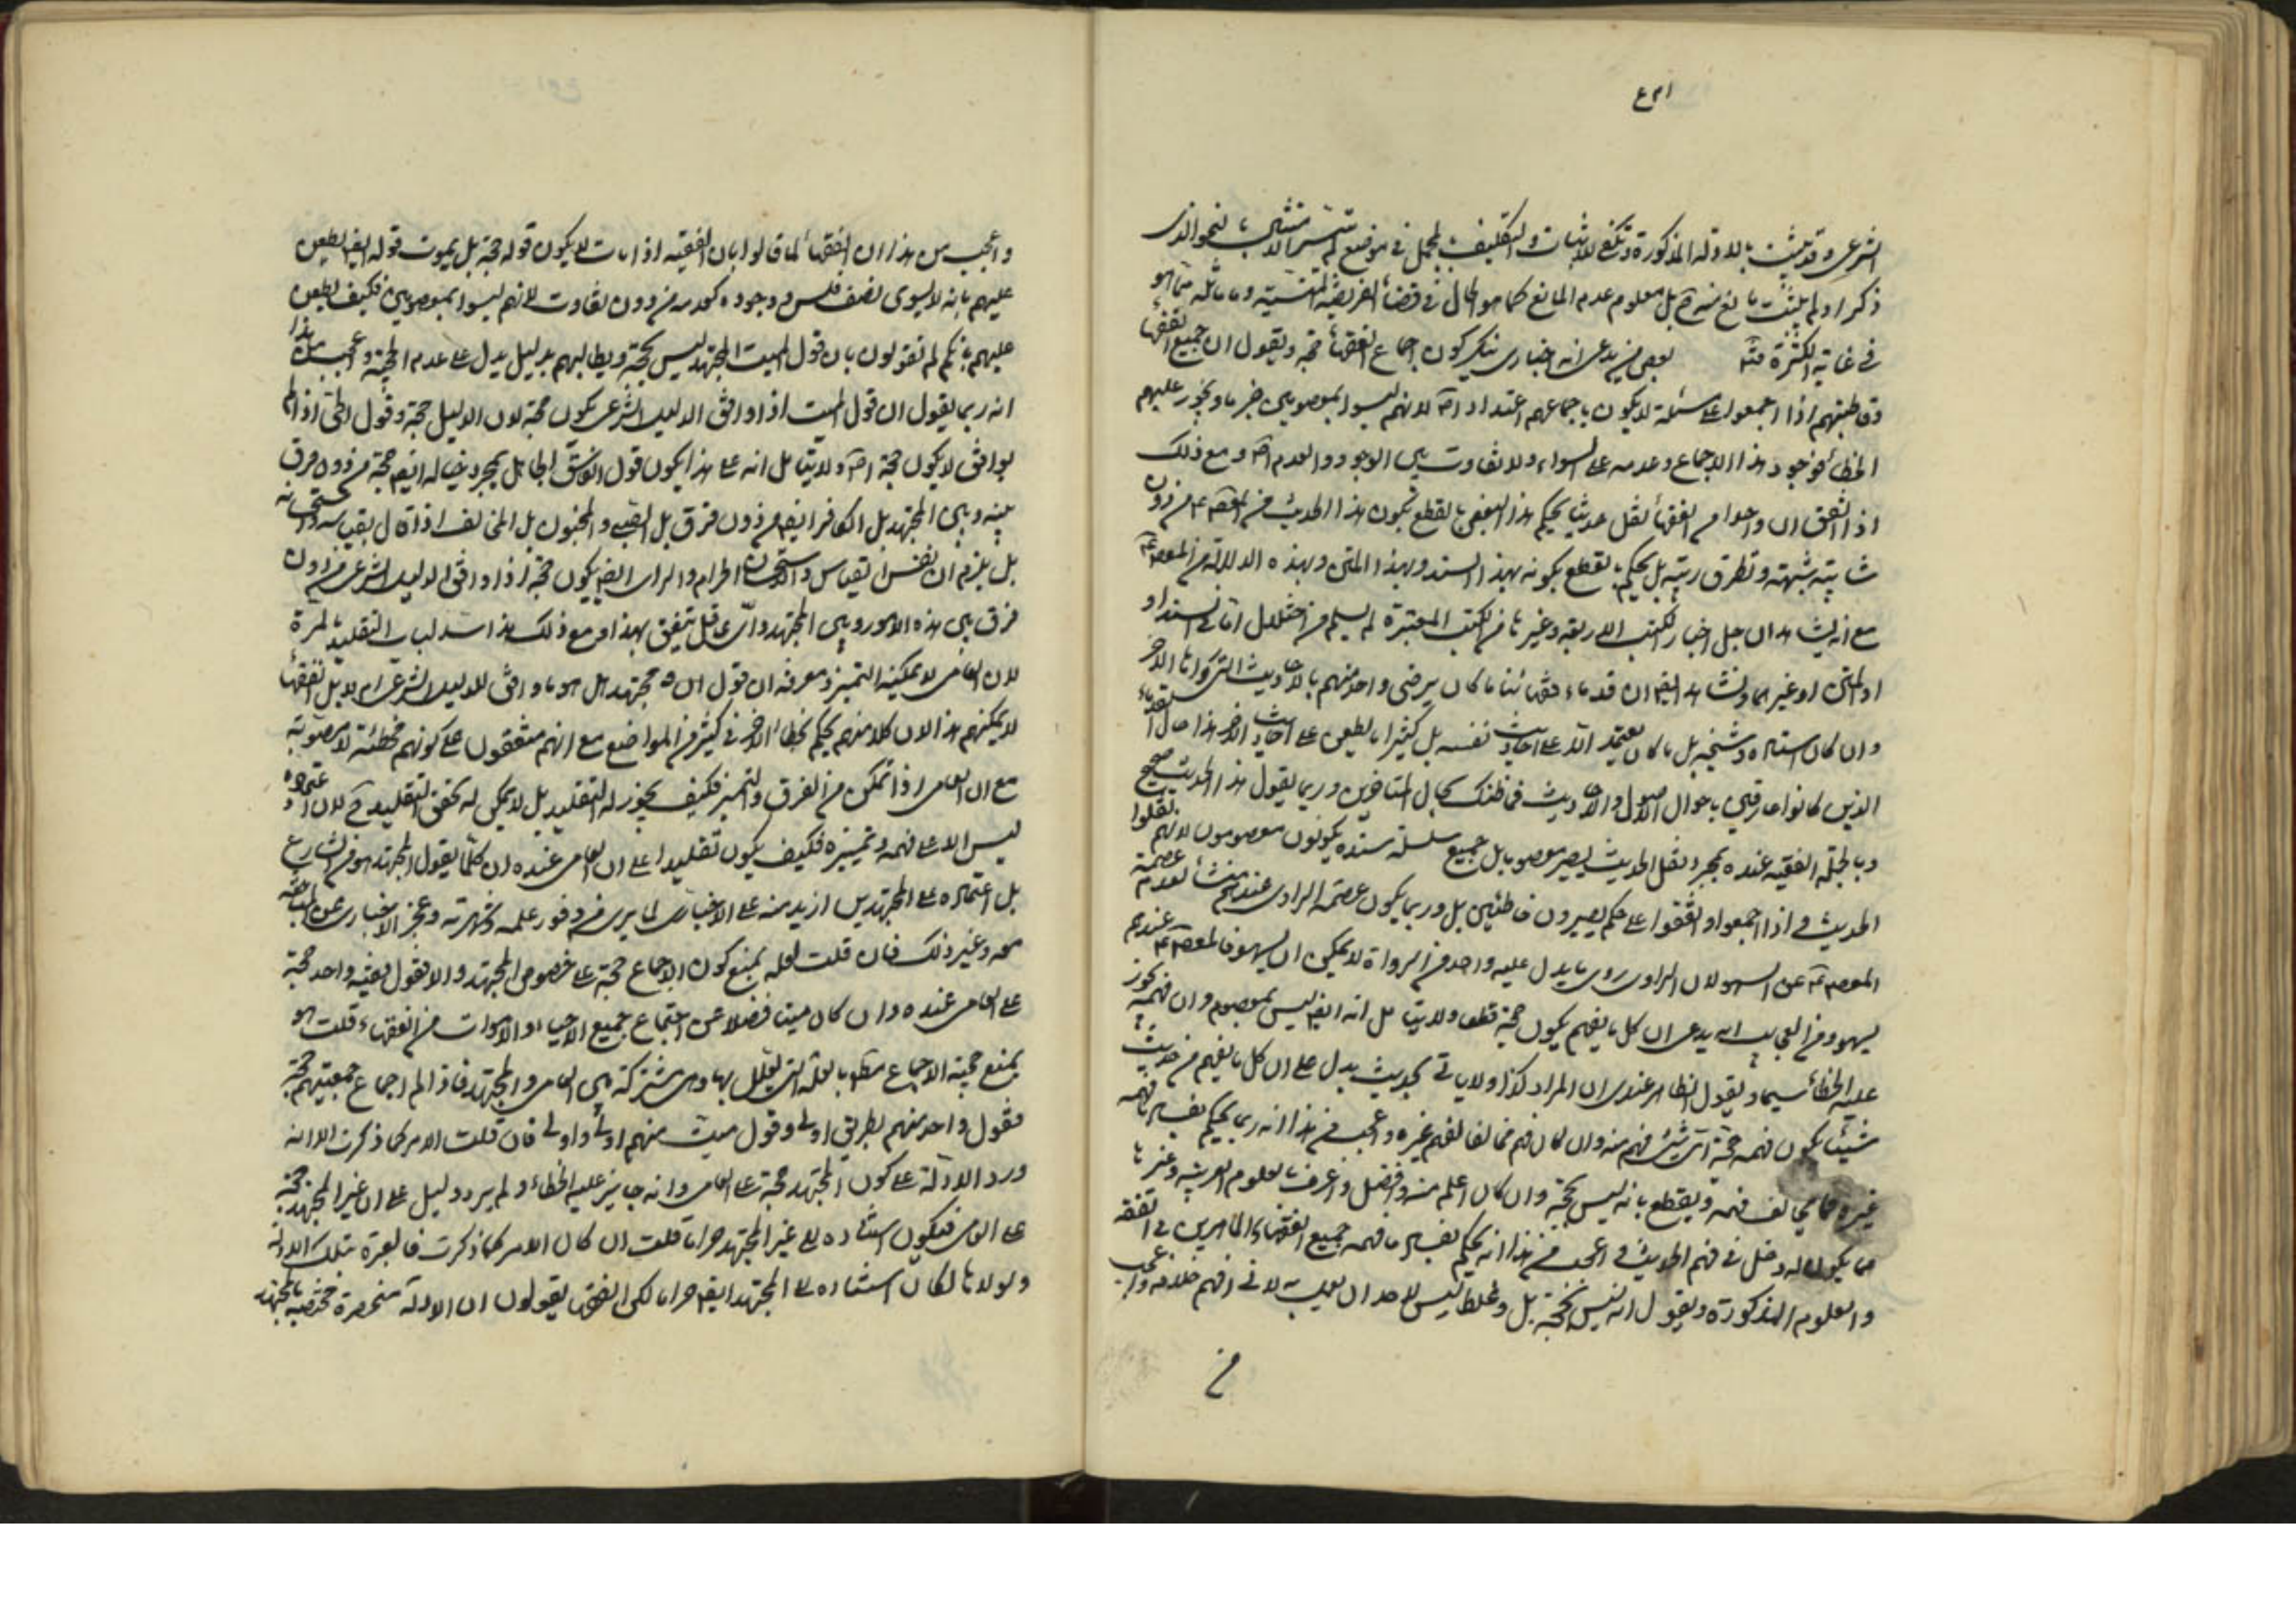 الشرعى وقد يثبت بالادلة المذكورة وتكفى لاثبات التكليف المجمل فى موضع لم يتيسر الامتثال بالنحو الذى
ذكر او لم يثبت مانع شرعى بل معلوم عدم المانع كما هو الحال فى قضاء الفريضة المنسية وما ماثله مما هو
فى غاية الكثرة منه بعض من يدعى انه اخبارى ينكر كون اجماع الفقهاء حجة ويقول ان جميع الفقهاء
وقاطبتهم اذا اجمعوا على مسئلة لا يكون باجماعهم اعتداد اصلا لانهم ليسوا بمعصومين جزما ويجوز عليهم
الخطاء فوجود هذا الاجماع وعدمه على السواء ولا تفاوت بين الوجود والعدم اصلا ومع ذلك
اذا اتفق ان واحدا من الفقهاء نقل حديثا يحكم هذا البعض بالقطع بكون هذا الحديث من المعصوم من دون
شائبة شبهة وتطرق ريبة بل يحكم بالقطع بكونه بهذا السند وبهذا المتن وبهذه الدلالة من المعصوم
مع انه يشاهد ان جل اخبار الكتب الاربعة وغيرها من الكتب المعتبرة لم يسلم من اختلال اما فى السند او
او المتن او غيرهما ويشاهد ايضا ان قدماء فقهائنا ما كان يرضى واحد منهم بالاحاديث التى رواها الاخر
وان كان استاده وشيخه بل ما كان يعتمد الا على احاديث نفسه بل كثيرا ما يطعن على احاديث الاخر هذا حال القدماء
الذين كانوا عارفين باحوال الاصول والاحاديث فما ظنك بحال المتاخرين وربما يقول هذا الحديث صحيح
وبالجملة الفقيه عنده بمجرد نقل الحديث يصير معصوما بل جميع سلسلة سنده يكونون معصومون لانهم نقلوا
الحديث و اذا اجمعوا واتفقوا على حكم يصيرون خاطئين بل وربما يكون عصمة الراوى عنده منشأ لعدم عصمة
المعصوم عن السهو لان الراوى روى ما يدل عليه واحد من الرواة لا يمكن ان يسهو فالمعصوم عندهم
يسهو ومن العجايب انه يدعى ان كل ما يفهم يكون حجة قطعا ولا يتامل انه ايضا ليس بمعصوم وان فهمه يجوز
عليه الخطاء سيما ويقول الظاهر عندى ان المراد كذا ولا ياتى بحديث يدل على ان كل ما يفهم من حديث
شيئا يكون فهمه حجة اى شئ فهم منه وان كان فهم مخالفا لفهم غيره واعجب من هذا انه ربما يحكم بفساد ما فهمه
غيره مما يخالف فهمه ويقطع بانه ليس بحجة وان كان اعلم منه وافضل واعرف بالعلوم العربية وغيرها
مما يكون له دخل فى فهم الحديث و اعجب من هذا انه يحكم بفساد ما فهمه جميع الفقهاء الماهرين فى الفقه
والعلوم المذكورة ويقول انه ليس بحجة بل وغلط ليس لاحد ان يعمل به لانى افهم خلافه واعجب
من
واعجب من هذا ان الفقهاء لما قالوا بان الفقيه اذا مات لا يكون قوله حجة بل يموت قوله ايضا يطعن
عليهم بانه لا يسوى نصف فلس ووجوده كعدمه من دون تفاوت لانهم ليسوا بمعصومين فكيف يطعن
عليهم بانكم لم تقولون بان قول الميت المجتهد ليس بحجة ويطالبهم بدليل يدل على عدم الحجية واعجب من هذا
انه ربما يقول ان قول الميت اذا وافق الدليل الشرعى يكون حجة لان الدليل حجة وقول الحى اذا لم
يوافق لا يكون حجة اصلا ولا يتامل انه على هذا يكون قول الفاسق الجاهل بمجرد خياله ايضا حجة من دون فرق
بينه وبين المجتهد بل الكافر ايضا من دون فرق بل الصبى والمجنون بل المخالف اذا قال بقياسه واستحسانه
بل يلزم ان نفس القياس والاستحسان الحرام والراى ايضا يكون حجة اذا وافق الدليل الشرعى من دون
فرق بين هذه الامور وبين المجتهد واى عاقل يتفوه بهذا ومع ذلك هذا سد لباب التقليد بالمرة
لان العامى لا يمكنه التميز ومعرفة ان قول ان مجتهد هل هو ما وافق الدليل الشرعى ام لا بل الفقهاء
لا يمكنهم هذا لان كلا منهم يحكم بخطاء الاخر فى كثير من المواضع مع انهم متفقون على كونهم مخطئة لا مصوبة
مع ان العامى اذا تمكن من الفرق والتميز فكيف يجوز له التقليد بل لا يمكن له تحقق التقليد لان اعتماده
ليس الا على فهمه وتميزه فكيف يكون تقليدا على ان العامى عنده ان كلما يقول المجتهد هو من الشارع
بل اعتماده على المجتهدين ازيد منه على الاخبارى لما يرى من وفور علمه وشهرته وعجز الاخبارى عن المباحثة
معه وغير ذلك فان قلت لعله يمنع كون الاجماع حجة على خصوص المجتهد والا فقول فقيه واحد حجة
على العامى عنده وان كان ميتا فضلا عن اجتماع جميع الاحياء والاموات من الفقهاء قلت هو
يمنع حجية الاجماع مطلقا بالعلة التى يعلل بها وهى مشتركة بين العامى والمجتهد فاذا لم اجماع جميعهم حجة
فقول واحد منهم بطريق اولى وقول ميت منهم اولى واولى فان قلت الامر كما ذكرت الا انه
ورد الادلة على كون المجتهد حجة على العامى وانه جايز عليه الخطاء ولم يرد دليل على ان غير المجتهد حجة
على العامى فيكون استناده الى غير المجتهد حراما قلت ان كان الامر كما ذكرت فالعبرة بتلك الادلة
ولولاها لكان استناده الى المجتهد ايضا حراما لكن الفقهاء يقولون ان الادلة منحصرة مختصة بالمجتهد